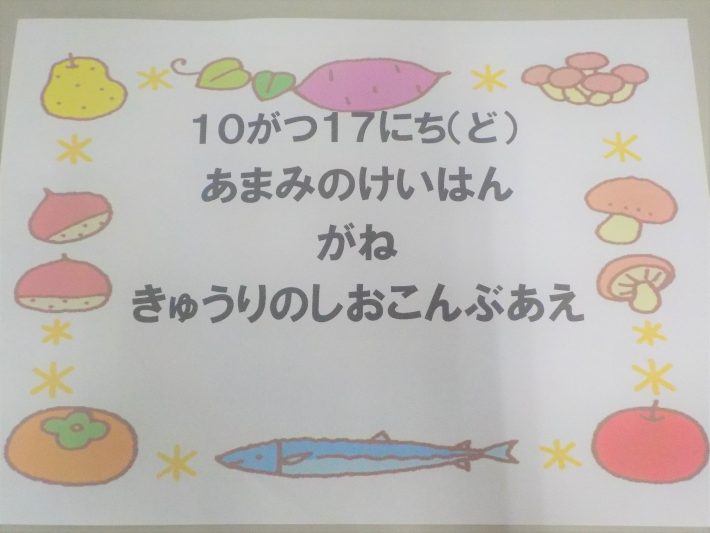 10がつ17にち(ど)
あまみのけいはん
がね
きゅうりのしおこんぶあえ